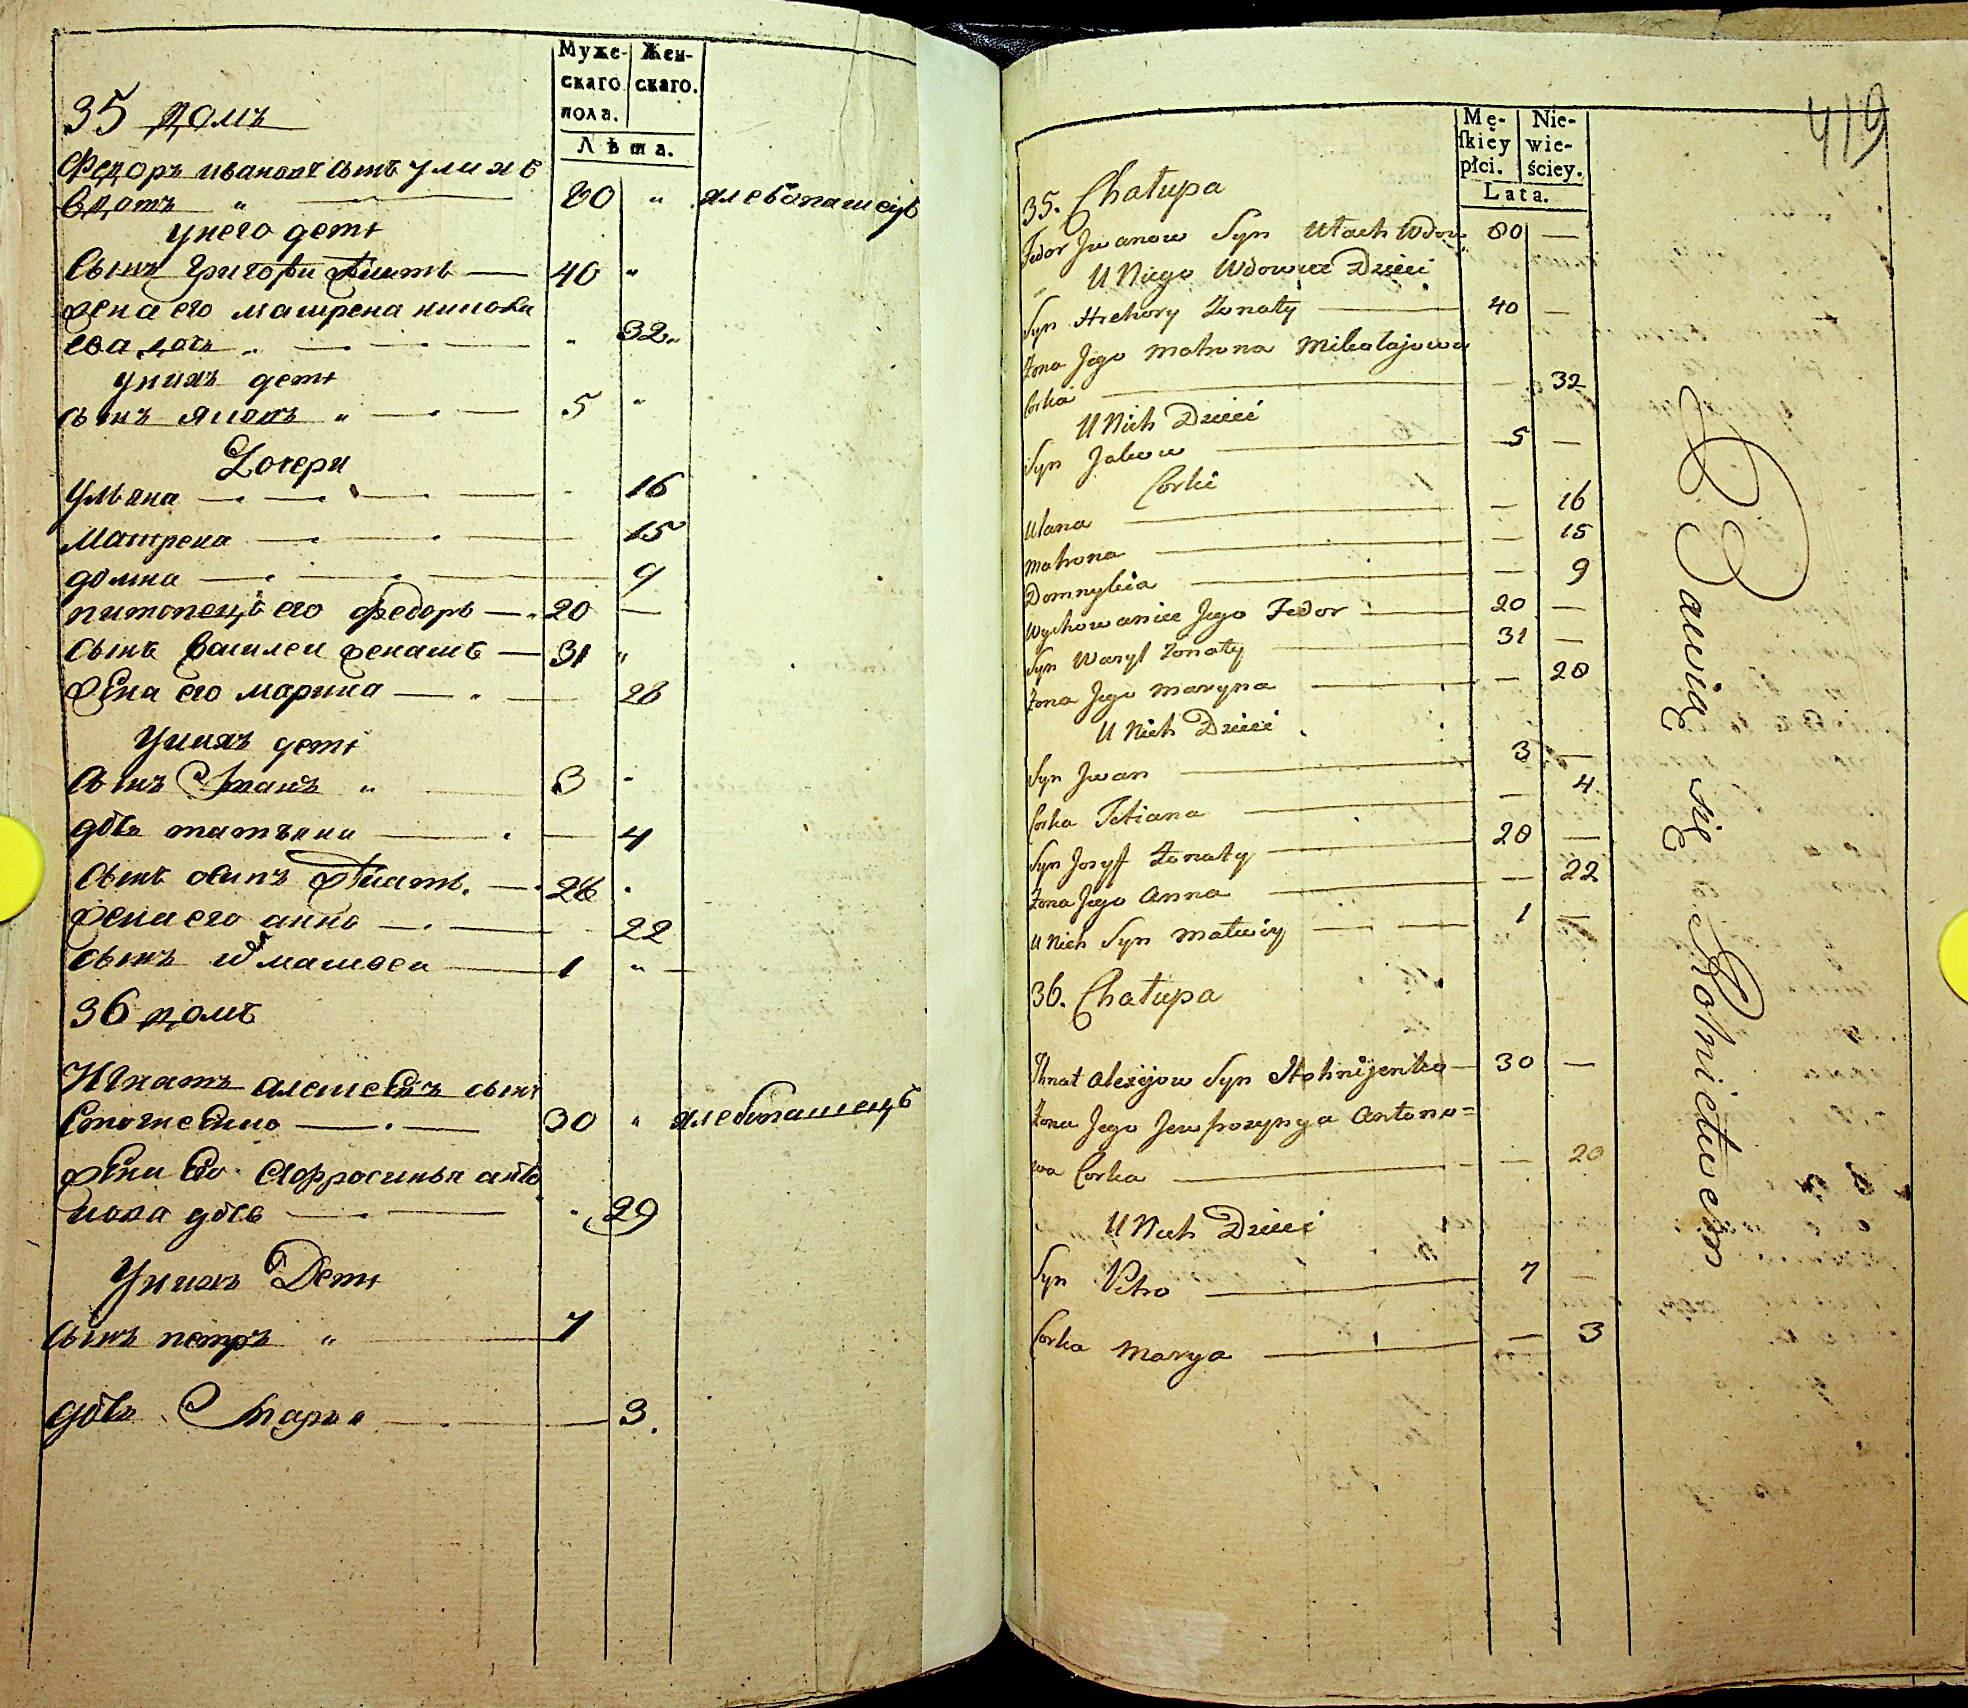 Муже-
скаго
пола.
Жен-
скаго.
Лѣта.
35 домъ
Федоръ ивановъ сынъ улихъ
вдотъ " 80 " хлебопашецъ
у него дети
Сынъ Григори женатъ 40 "
жена его матрена никола
ева дочь " " 32 "
у нихъ дети
сынъ яковъ " 5 "
Дочери
Ульяна 16
Матрена 15
домна 9
питомецъ его федоръ 20 —
сынъ василеи женатъ 31 "
жена его марина 28
У нихъ дети
сынъ Иванъ " 3 "
дочь татьяна — 4
сынъ осипъ женатъ. 28
жена его анна 22
сынъ матвеи 1 "
36 домъ
Игнатъ алексеевъ сынъ
30 " хлебопашецъ
жена Его Афросинья анто
нова дочь " 29
У нихъ Дети
сынъ петръ " 7
дочь Марья 3.
419
Mę-
ſkiey
płci.
Nie-
wie-
ściey.
Lata.
35. Chałupa
Fedor Jwanow Syn Ułach Wdow 80 —
U Niego Wdowca Dzieci
Syn Hrehory Zonaty 40 —
Zona Jego Matrona Mikołajowa
Corka — 32
U Nich Dzieci
Syn Jakow 5 —
Corki
Ulana — 16
Matrona — 15
Domnykia — 9
Wychowaniec Jego Fedor 20 —
Syn Wasyl Zonaty 31 —
Zona Jego Maryna — 28
U Nich Dzieci
Syn Jwan 3 —
Corka Tetiana — 4
Syn Jozyf Zonaty 28 —
Zona Jego Anna — 22
U Nich Syn Matwiy 1 —
36. Chałupa
Jhnat Alexijow Syn Stohnijenko 30 —
Zona Jego Jewfrozynya Antono=
wa Corka — 20
U Nich Dzieci
Syn Petro 7 —
Corka Marya — 3
Bawią się Rolnictwem